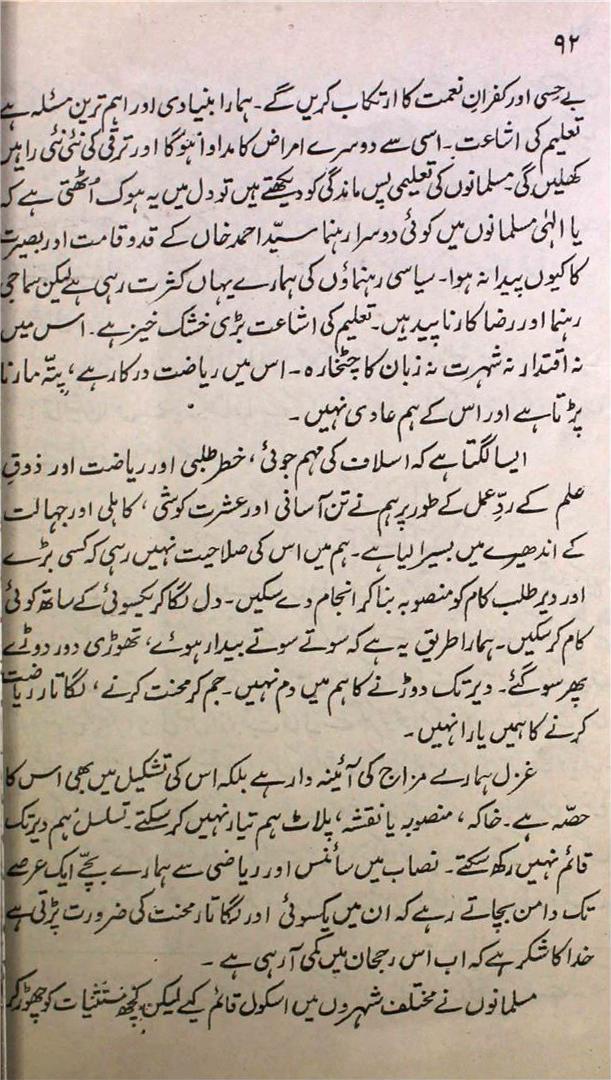 ۹۲
بے حِسی اور کفرانِ نعمت کا ارتکاب کریں گے۔ ہمارا بنیادی اور اہم ترین مسٔلہ ہے
تعلیم کی اشاعت۔ اسی سے دوسرے امراض کا مداوا ہوگا اور ترقی کی نئی نئی راہیں
کھلیں گی۔ مسلمانوں کی تعلیمی پس ماندگی کو دیکھتے ہیں تو دل میں یہ ہوک اُٹھتی ہے کہ
یا الٰہی مسلمانوں میں کوئی دوسرا رہنما سیّد احمد خاں کے قد و قامت اور بصیرت
کا کیوں پیدا نہ ہوا۔ سیاسی رہنماؤں کی ہمارے یہاں کثرت رہی ہے لیکن سماجی
رہنما اور رضا کار ناپید ہیں۔ تعلیم کی اشاعت بڑی خشک خیز ہے۔ اس میں
نہ اقتدار نہ شہرت نہ زبان کا چٹخارہ۔ اس میں ریاضت درکار ہے، پتّہ مارنا
پڑتا ہے اور اس کے ہم عادی نہیں۔
ایسا لگتا ہے کہ اسلاف کی مہم جوئی، خطر طلبی اور ریاضت اور ذوقِ
علم کے ردِّ عمل کے طور پر ہم نے تن آسانی اور عشرت کوشی، کاہلی اور جہالت
کے اندھیرے میں بسیرا لیا ہے۔ ہم میں اس کی صلاحیت نہیں رہی کہ کسی بڑے
اور دیر طلب کام کو منصوبہ بنا کر انجام دے سکیں۔ دل لگا کر یکسوئی کے ساتھ کوئی
کام کر سکیں۔ ہمارا طریق یہ ہے کہ سوتے سوتے بیدار ہوئے، تھوڑی دور دوڑے
پھر سو گئے۔ دیر تک دوڑنے کا ہم میں دم نہیں۔ جم کر محنت کرنے، لگاتار ریاضت
کرنے کا ہمیں یارا نہیں۔
غزل ہمارے مزاج کی آئینہ دار ہے بلکہ اس کی تشکیل میں بھی اس کا
حصّہ ہے۔ خاکہ، منصوبہ یا نقشہ، پلاٹ ہم تیار نہیں کر سکتے۔ تسلسل ہم دیر تک
قائم نہیں رکھ سکتے۔ نصاب میں سائنس اور ریاضی سے ہمارے بچّے ایک عرصے
تک دامن بچاتے رہے کہ ان میں یکسوئی اور لگاتار محنت کی ضرورت پڑتی ہے
خدا کا شکر ہے کہ اب اس رجحان میں کمی آ رہی ہے۔
مسلمانوں نے مختلف شہروں میں اسکول قائم کیے لیکن کچھ مستثنیات کو چھوڑ کر